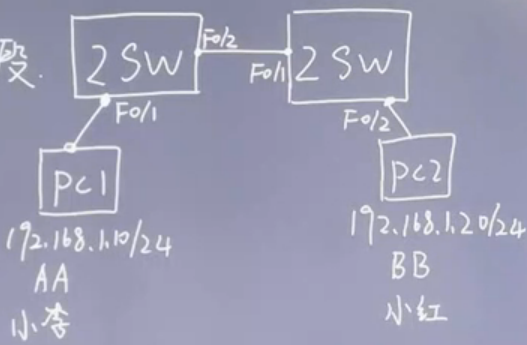 段.
2 SW
F0/2
F0/1
2 SW
F0/1
F0/2
PC1
PC2
192.168.1.10/24
192.168.1.20/24
AA
BB
小李
小红